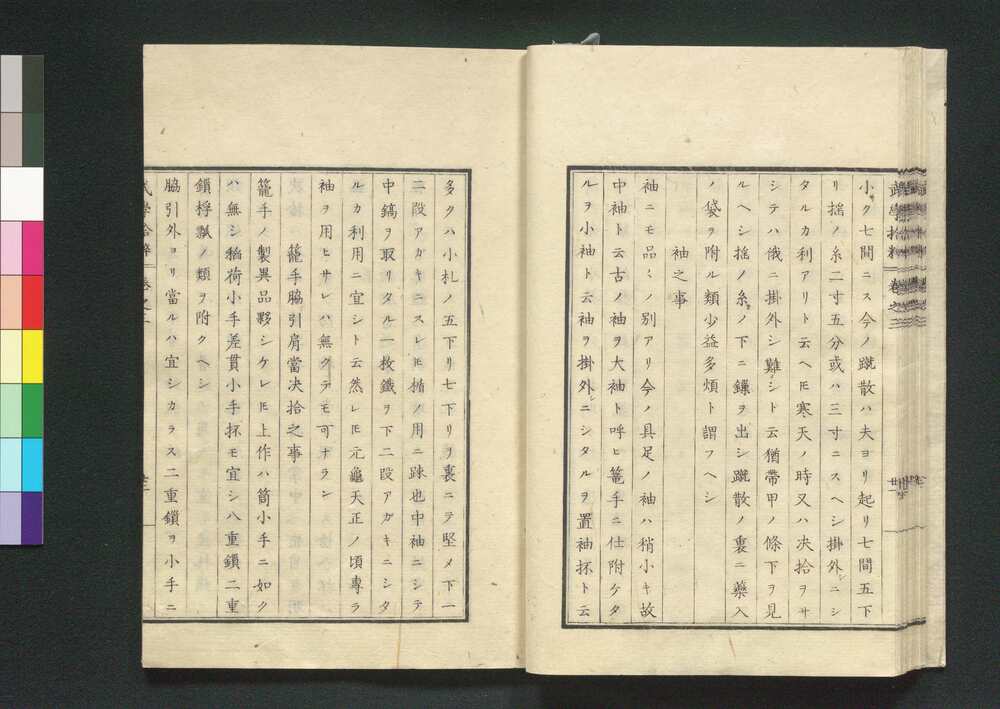 小ク七間ニス今ノ蹴散ハ夫ヨリ起リ七間五下
リ揺ノ糸二寸五分或ハ三寸ニスヘシ掛外シニシ
タルカ利アリト云ヘ𪜈寒天ノ時又ハ决拾ヲサ
シテハ俄ニ掛外シ難シト云猶帯甲ノ條下ヲ見
ルヘシ揺ノ糸ノ下ニ鏁ヲ出シ蹴散ノ裏ニ藥入
ノ袋ヲ附ル類少益多煩ト謂フヘシ
袖之事
袖ニモ品〻ノ別アリ今ノ具足ノ袖ハ稍小キ故
中袖ト云古ノ袖ヲ大袖ト呼ヒ篭手ニ仕附ケタ
ルヲ小袖ト云袖ヲ掛外シニシタルヲ置袖抔ト云
多クハ小札ノ五下リ七下リリ裏ニテ堅メ下一
二段アガキニスレ𪜈楯ノ用ニ疎也中袖ニシテ
中鎬ヲ取リタル一枚鐵ヲ下二段アガキニシタ
ルカ利用ニ宜シト云然レ𪜈元龜天正ノ頃專ラ
袖ヲ用ヒサレハ無クテモ可ナラン
籠手脇引肩當决拾之事
籠手ノ製異品夥シケレ𪜈上作ハ筒小手ニ如ク
ハ無シ稲荷小手差貫小手抔モ宜シ八重鎖二重
鎖桴瓢ノ類ヲ附クヘシ
脇引外ヨリ當ルハ宜シカラス二重鎖ヲ小手ニ